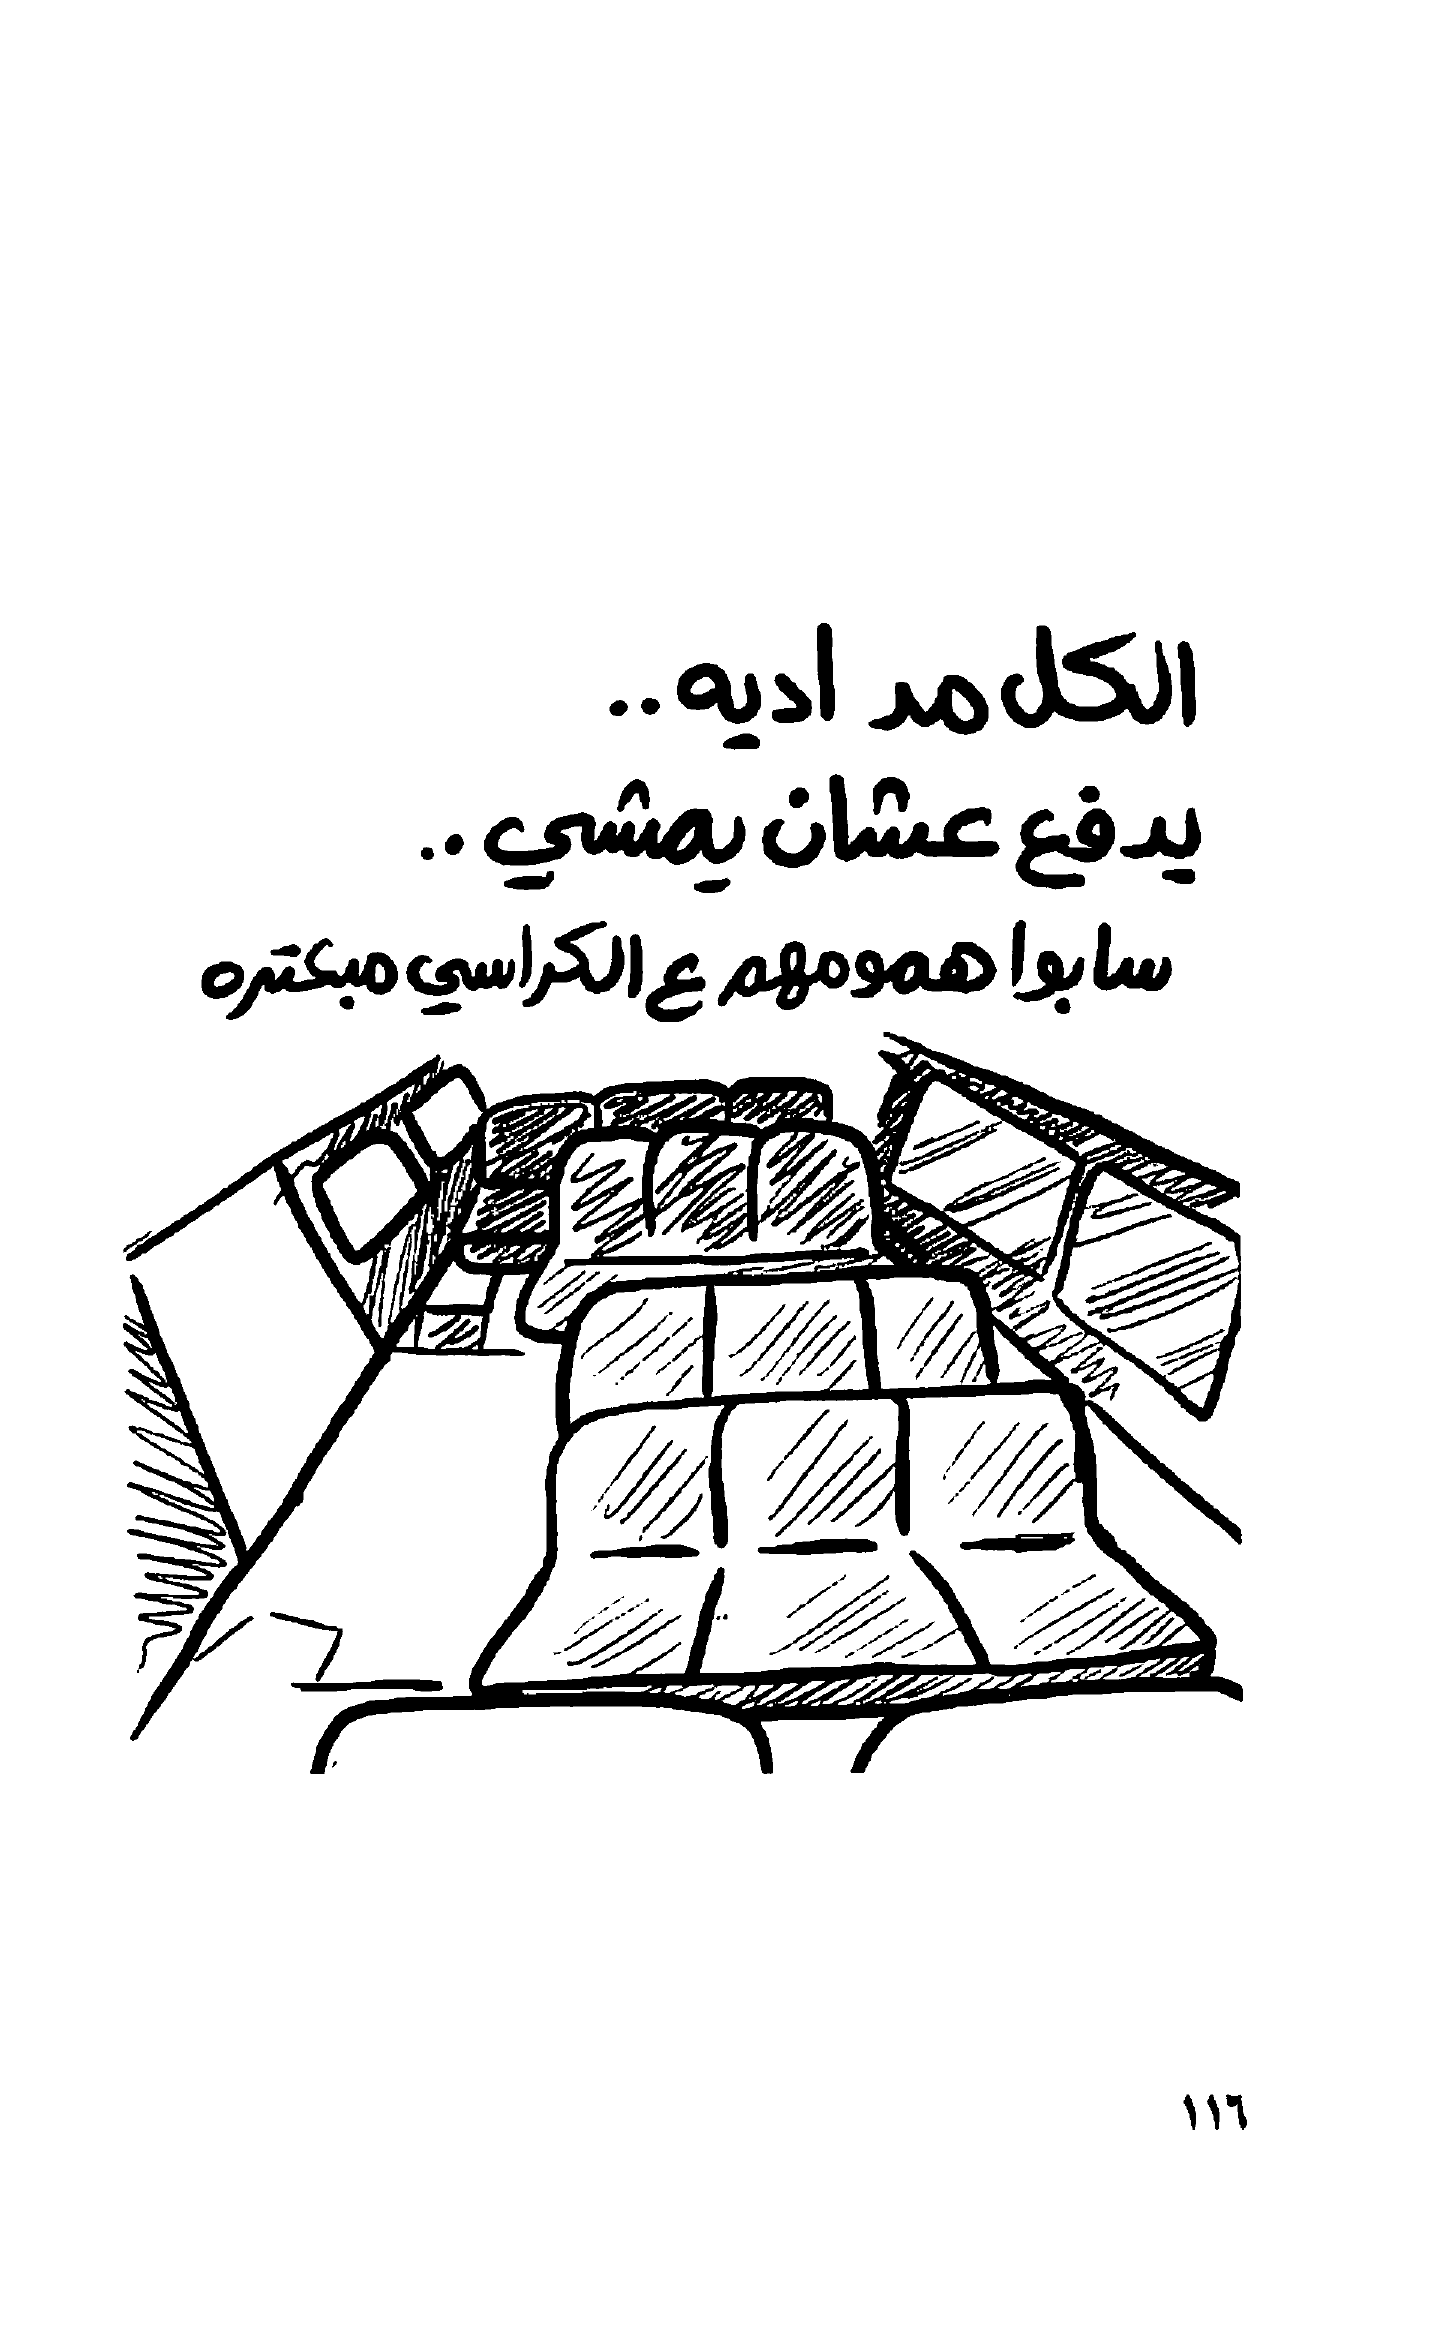 الكل مد اديه..
يدفع عشان يمشي..
سابوا همومهم ع الكراسي مبعتره
١١٦